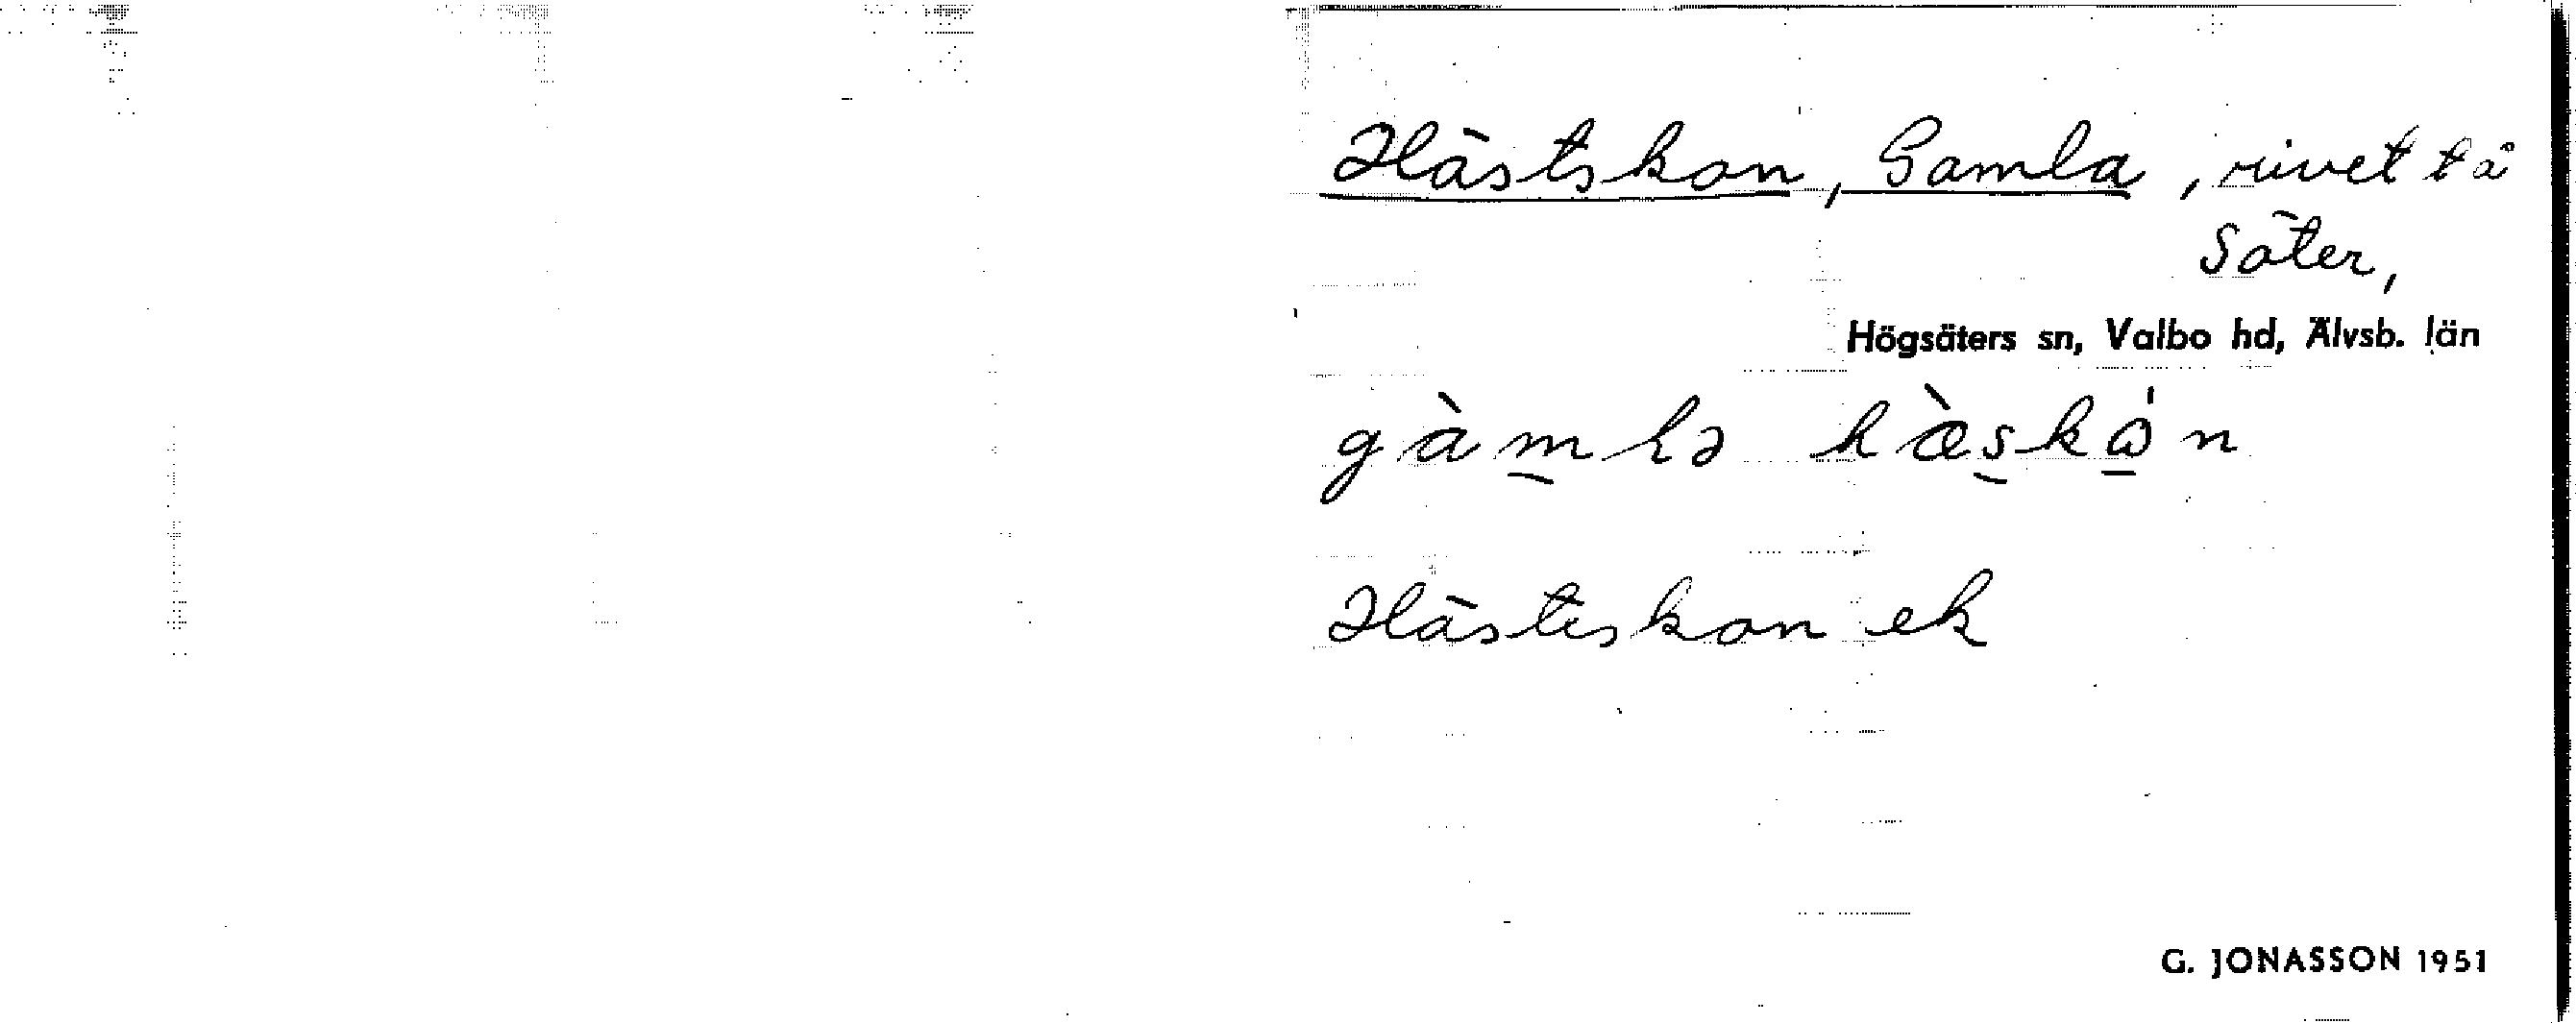 Hästskon, Gamla, rivet tå
Säter,
Högsäters sn, Valbo hd, Älvsb. län
gàmla hæ̀skɷ̀n
Hästeskon ek
G. JONASSON 1951